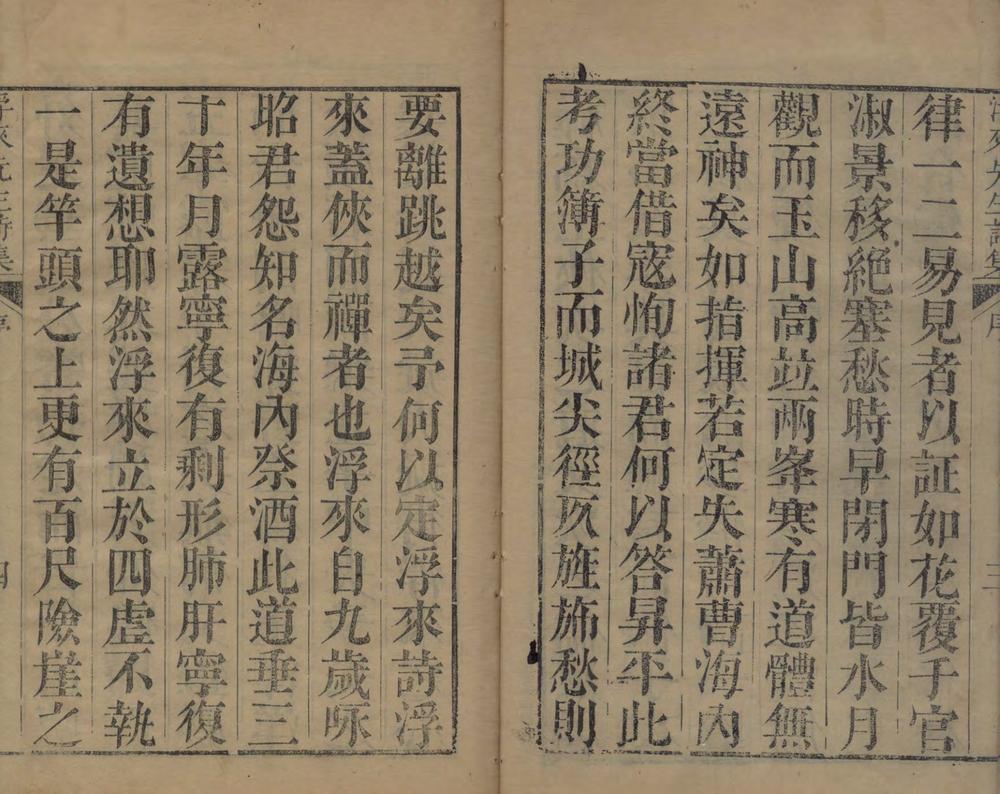 律一二易見者以証如花覆千官
淑景移絕塞愁時早閉門皆水月
觀而玉山高竝兩峯寒有道體無
遠神矣如指揮若定失蕭曹海內
終當借寇恂諸君何以答昇平此
考功簿子而城尖徑仄旌斾愁則
要離跳越矣予何以定浮來詩浮
來蓋俠而禪者也浮來自九歲咏
昭君怨知名海內祭酒此道垂三
十年月露寧復有剩形肺肝寧復
有遺想耶然浮來立於四虛不執
一是竿頭之上更有百尺險崖之